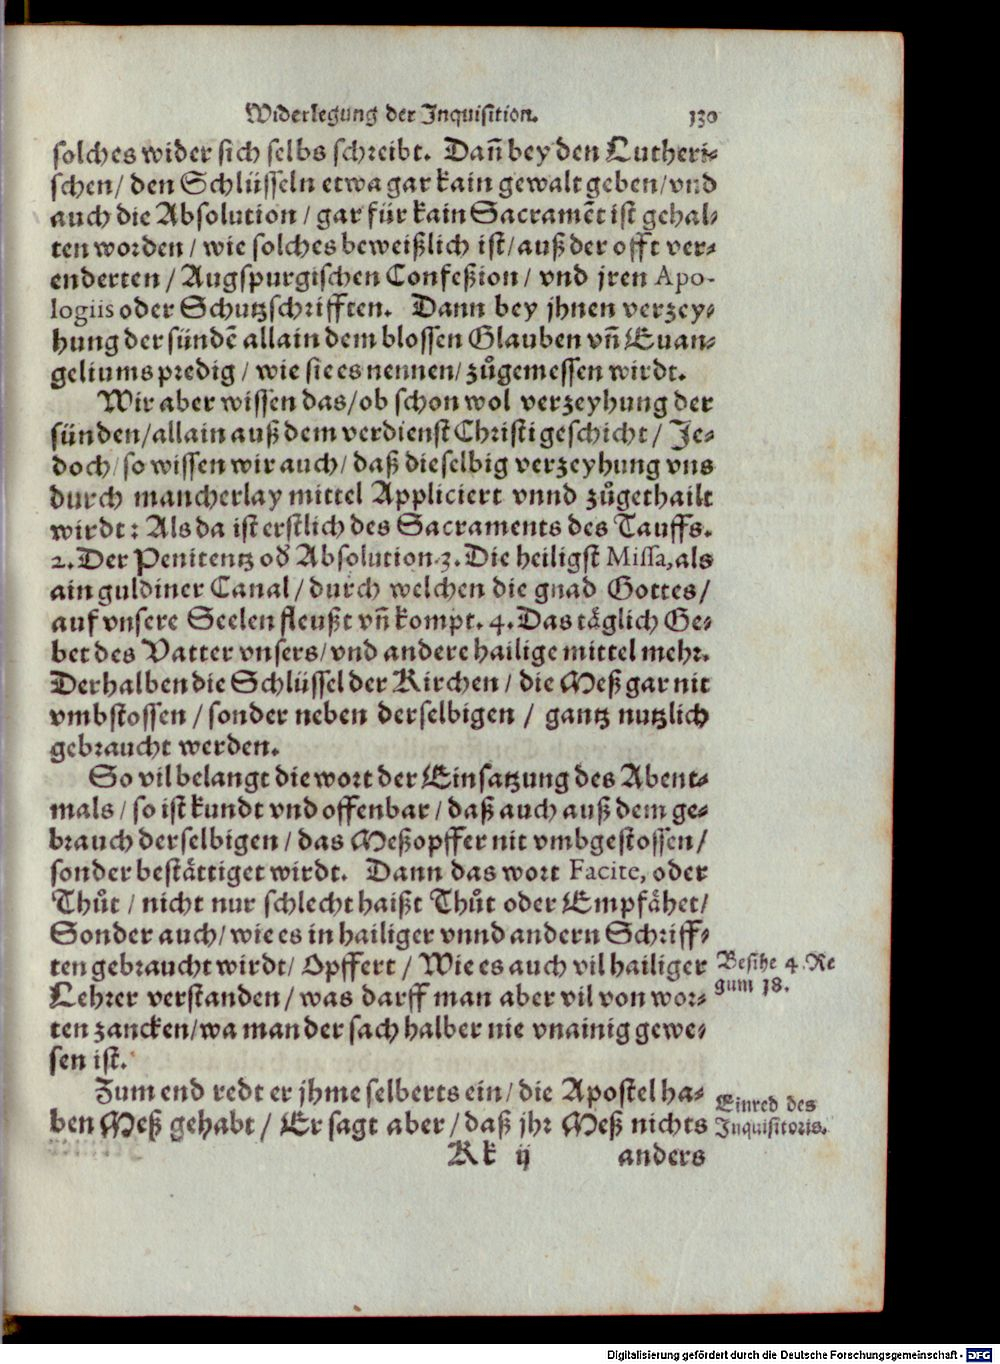 Widerlegung der Inquisition. 130
solches wider sich selbs schreibt. Dañ bey den Lutheri-
schen/ den Schlüsseln etwa gar kain gewalt geben/ vnd
auch die Absolution / gar für kain Sacramēt ist gehal-
ten worden / wie solches beweißlich ist/ auß der offt ver-
enderten / Augspurgischen Confeßion / vnd jren Apo-
logiis oder Schutzschrifften. Dann bey jhnen verzey-
hung der sündē allain dem blossen Glauben vñ Euan-
geliums predig / wie sie es nennen/ zůgemessen wirdt.
Wir aber wissen das/ ob schon wol verzeyhung der
sünden/ allain auß dem verdienst Christi geschicht/ Je-
doch/ so wissen wir auch/ daß dieselbig verzeyhung vns
durch mancherlay mittel Appliciert vnnd zůgethailt
wirdt: Als da ist erstlich des Sacraments des Tauffs.
2. Der Penitentz od̄ Absolution. 3. Die heiligst Missa, als
ain guldiner Canal / durch welchen die gnad Gottes/
auf vnsere Seelen fleußt vñ kompt. 4. Das täglich Ge-
bet des Vatter vnsers/ vnd andere hailige mittel mehr.
Derhalben die Schlüssel der Kirchen / die Meß gar nit
vmbstossen / sonder neben derselbigen / gantz nutzlich
gebraucht werden.
So vil belangt die wort der Einsatzung des Abent-
mals / so ist kundt vnd offenbar / daß auch auß dem ge-
brauch derselbigen / das Meßopffer nit vmbgestossen/
sonder bestättiget wirdt. Dann das wort Facite, oder
Thůt / nicht nur schlecht haißt Thůt oder Empfåhet/
Sonder auch/ wie es in hailiger vnnd andern Schriff-
ten gebraucht wirdt/ Opffert / Wie es auch vil hailiger
Lehrer verstanden / was darff man aber vil von wor-
ten zancken/ wa man der sach halber nie vnainig gewe-
sen ist.
Besihe 4. Re
gum 18.
Zum end redt er jhme selberts ein / die Apostel ha-
ben Meß gehabt / Er sagt aber / daß jhr Meß nichts
Einred des
Inquisitoris.
Kk ij anders
Digitalisierung gefördert durch die Deutsche Forschungsgemeinschaft - DFG